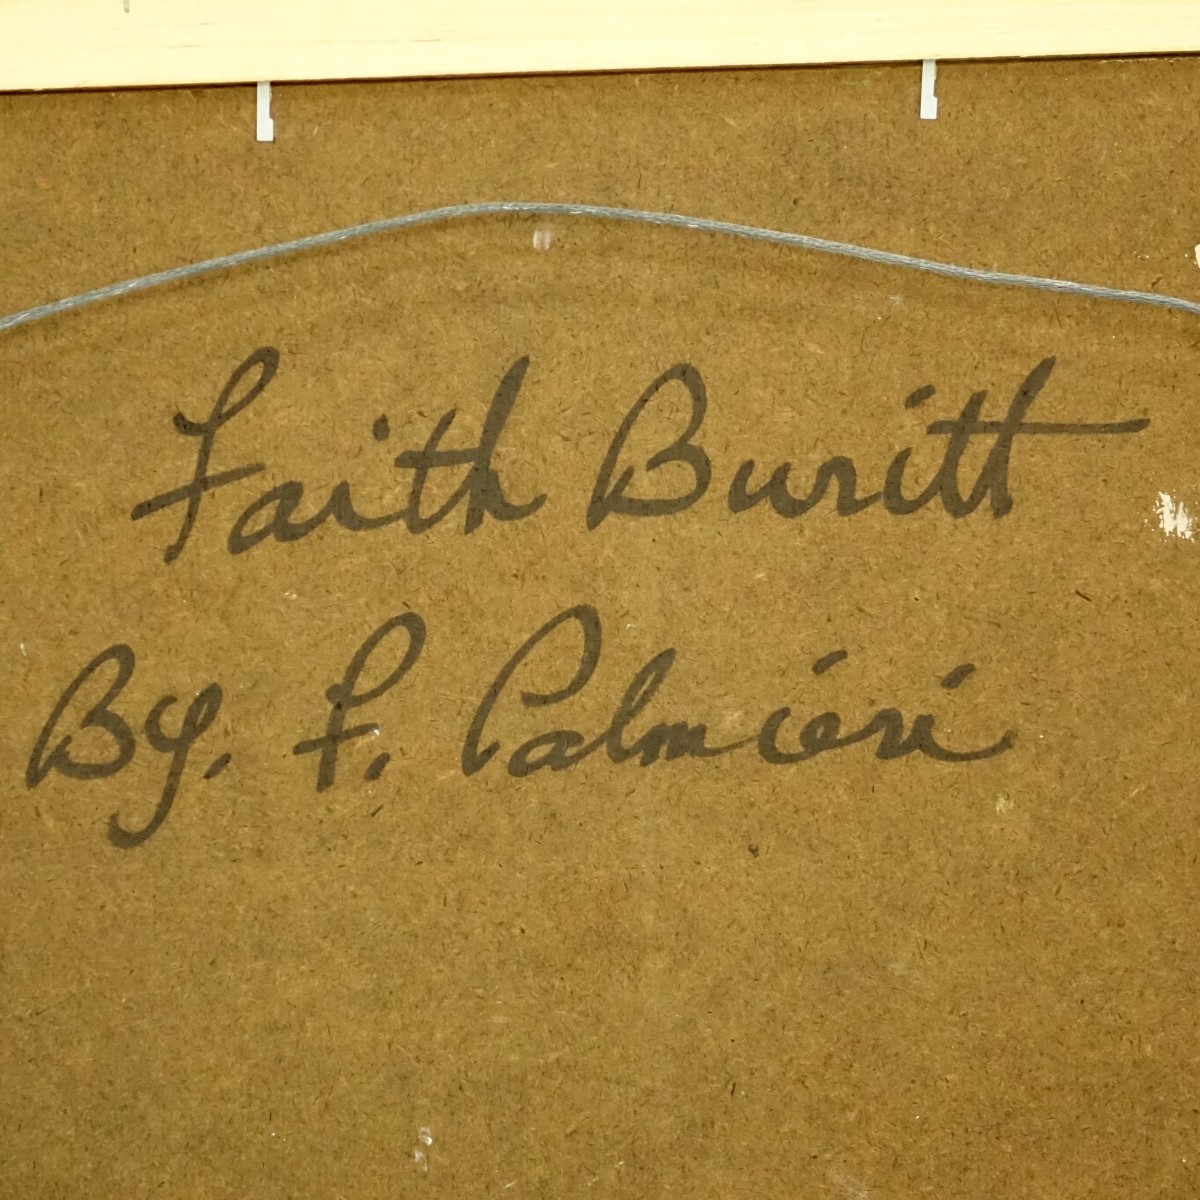 Faith Buritt
By. F. Palmieri